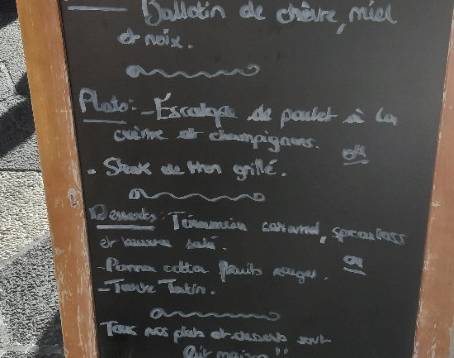 Ballotin de chèvre, miel
et noix.
Plats: - Escalope de poulet à la
crème et champignons.
ou
- Steak de thon grillé.
Desserts: Tiramisu caramel, spéculoss
et beurre salé.
ou
- Panna cotta fruits rouges.
- Tarte Tatin.
Tous nos plats et desserts sont
fait maison !!